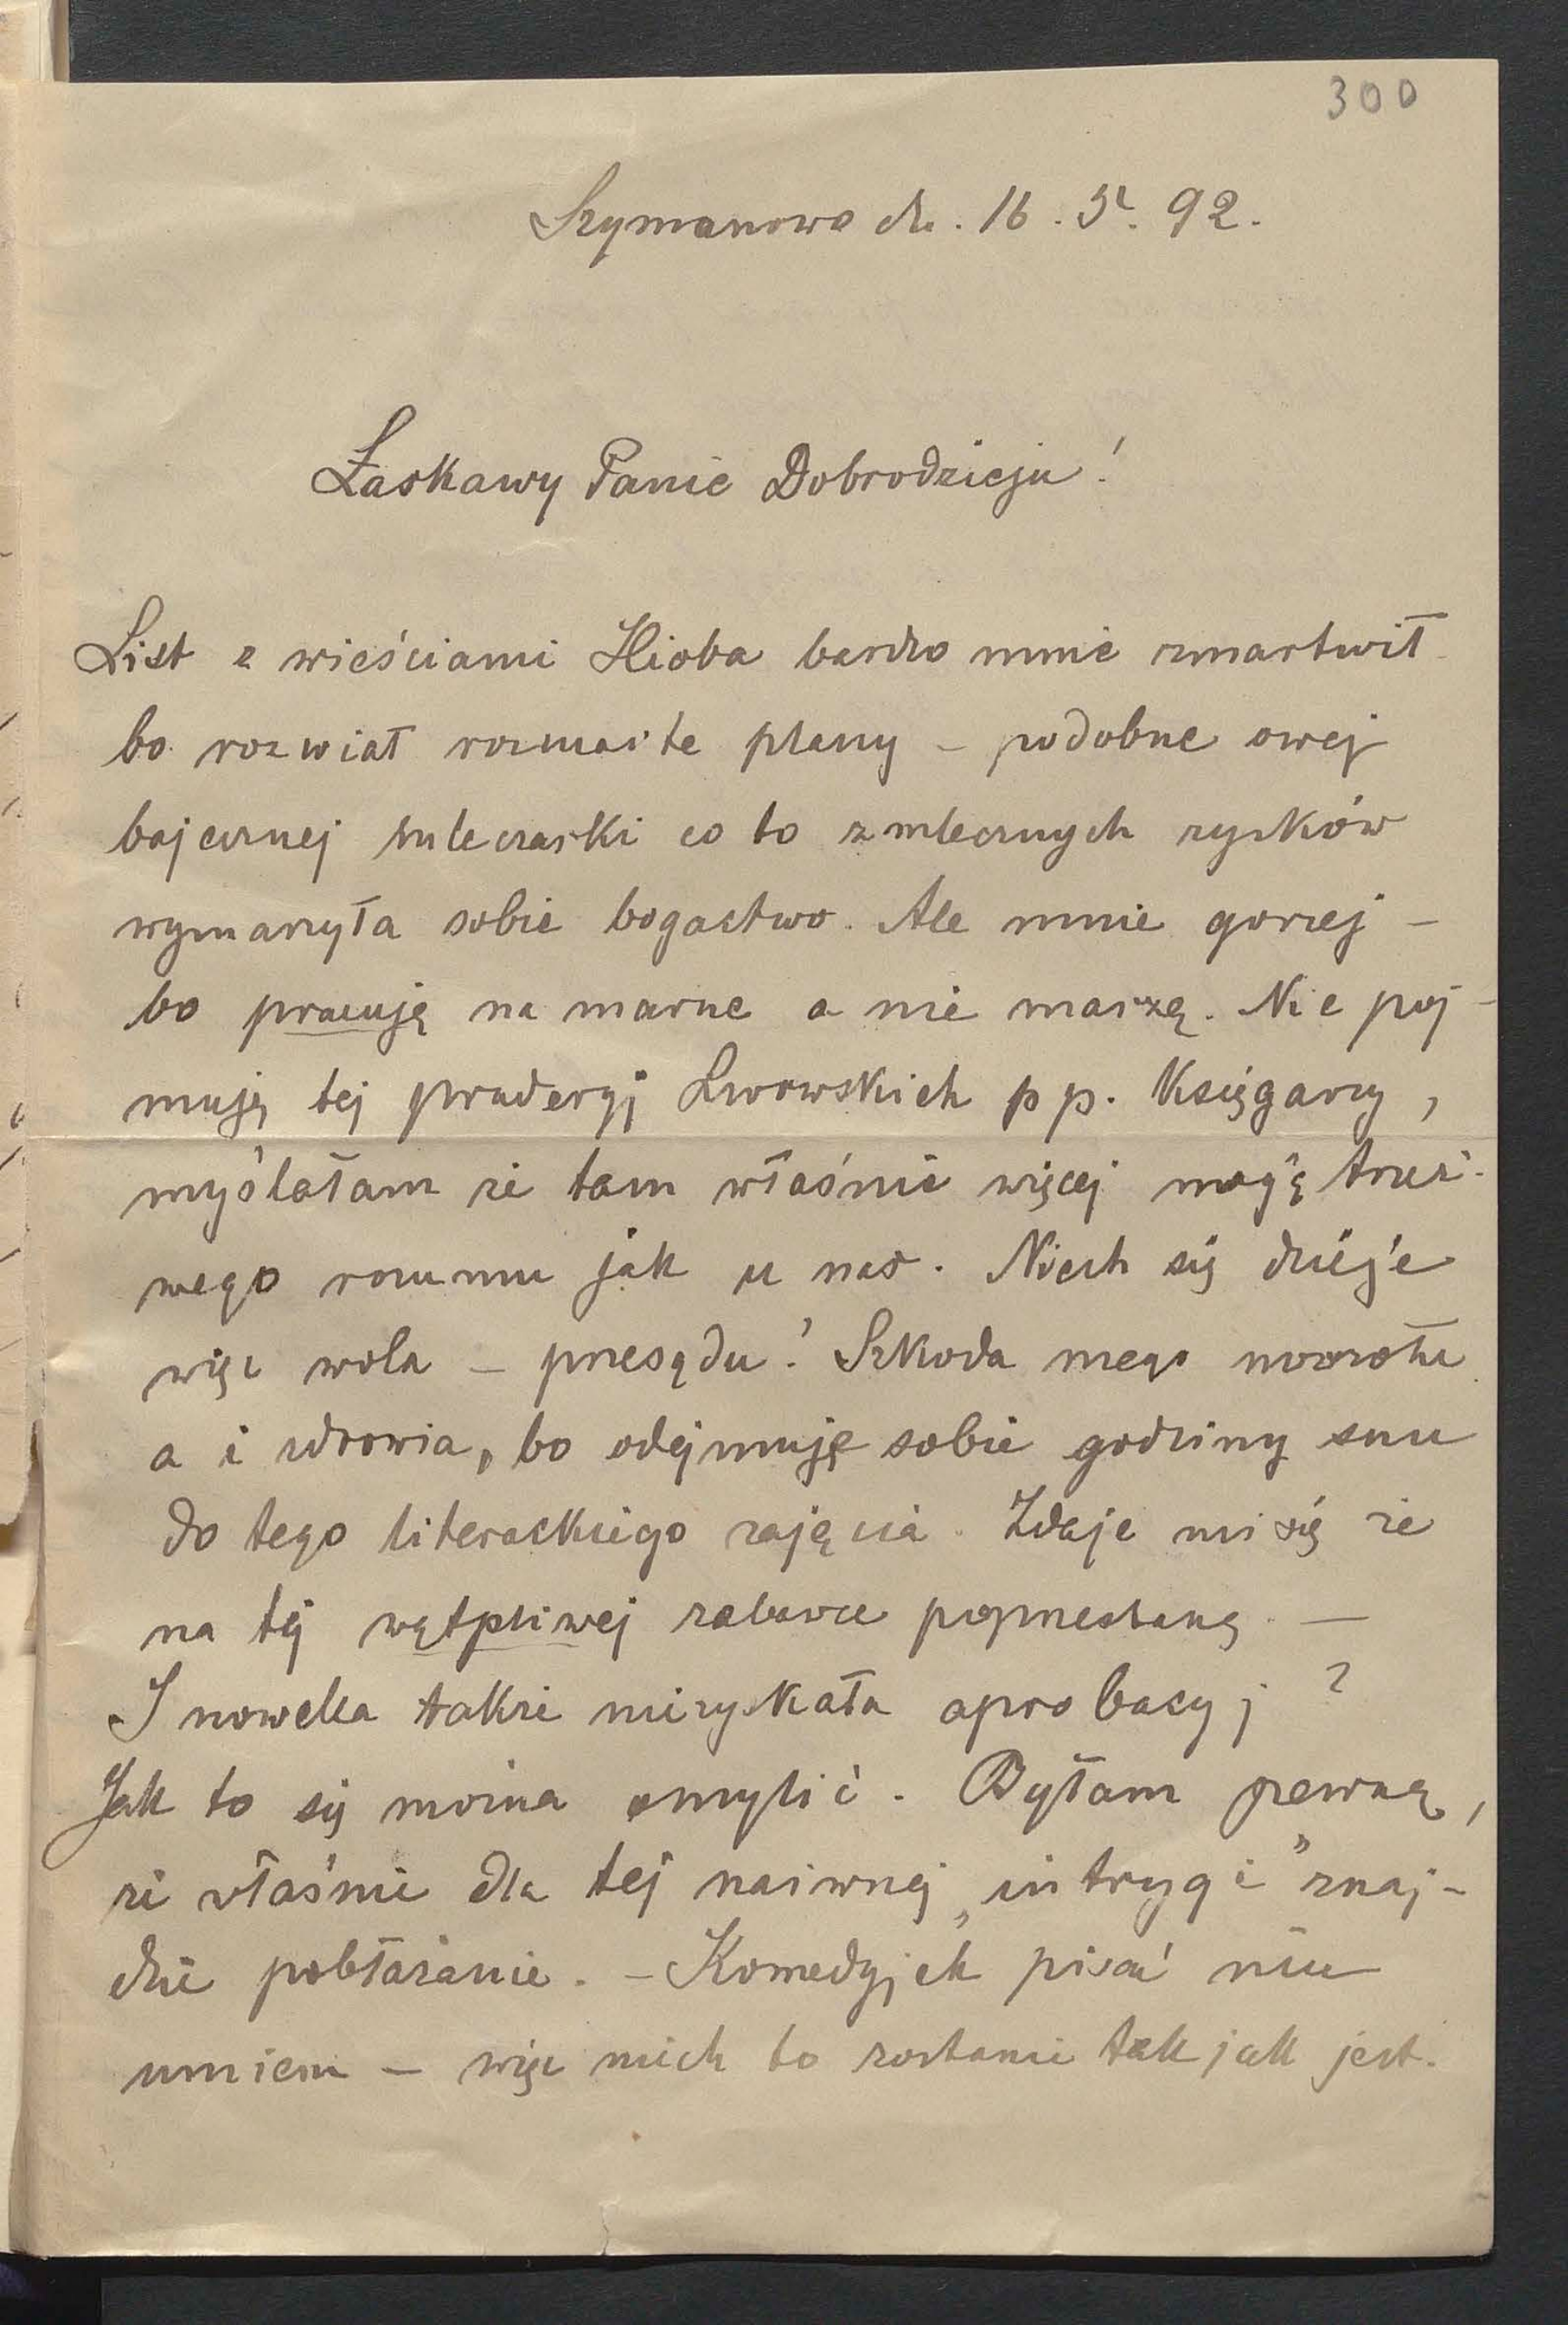 300
Szymanowo dn. 16. 5. 92.
Łaskawy Panie Dobrodzieju!
List z wieściami Hioba bardzo mnie zmartwił
bo rozwiał rozmaite plany – podobne owej
bajecznej mleczarki co to z mlecznych zysków
wymarzyła sobie bogactwo. Ale mnie gorzej –
bo pracuję na marne a nie marzę. Nie poj-
muję tej pruderyj Lwowskich pp. Księgarzy,
myślałam że tam właśnie więcej mają trzeź-
wego rozumu jak u nas. Niech się dzieje
więc wola – przesądu! Szkoda mego mozołu
a i zdrowia, bo odejmuję sobie godziny snu
do tego literackiego zajęcia. Zdaje mi się że
na tej wątpliwej zabawce poprzestanę. —
I nowelka także niezyskała aprobacyj?
Jak to się można omylić. Byłam pewną,
że właśnie dla tej naiwnej „intrygi" znaj-
dzie pobłażanie. – Komedyjek pisać nie
umiem – więc niech to zostanie tak jak jest.